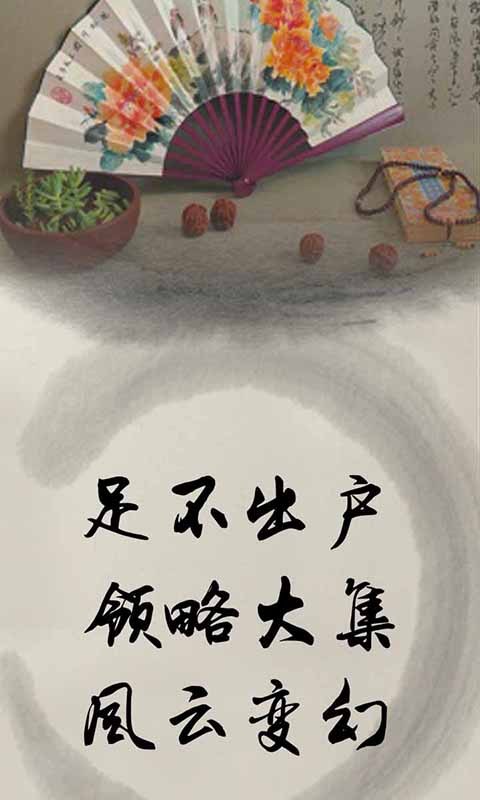 足不出户
领略大集
风云变幻